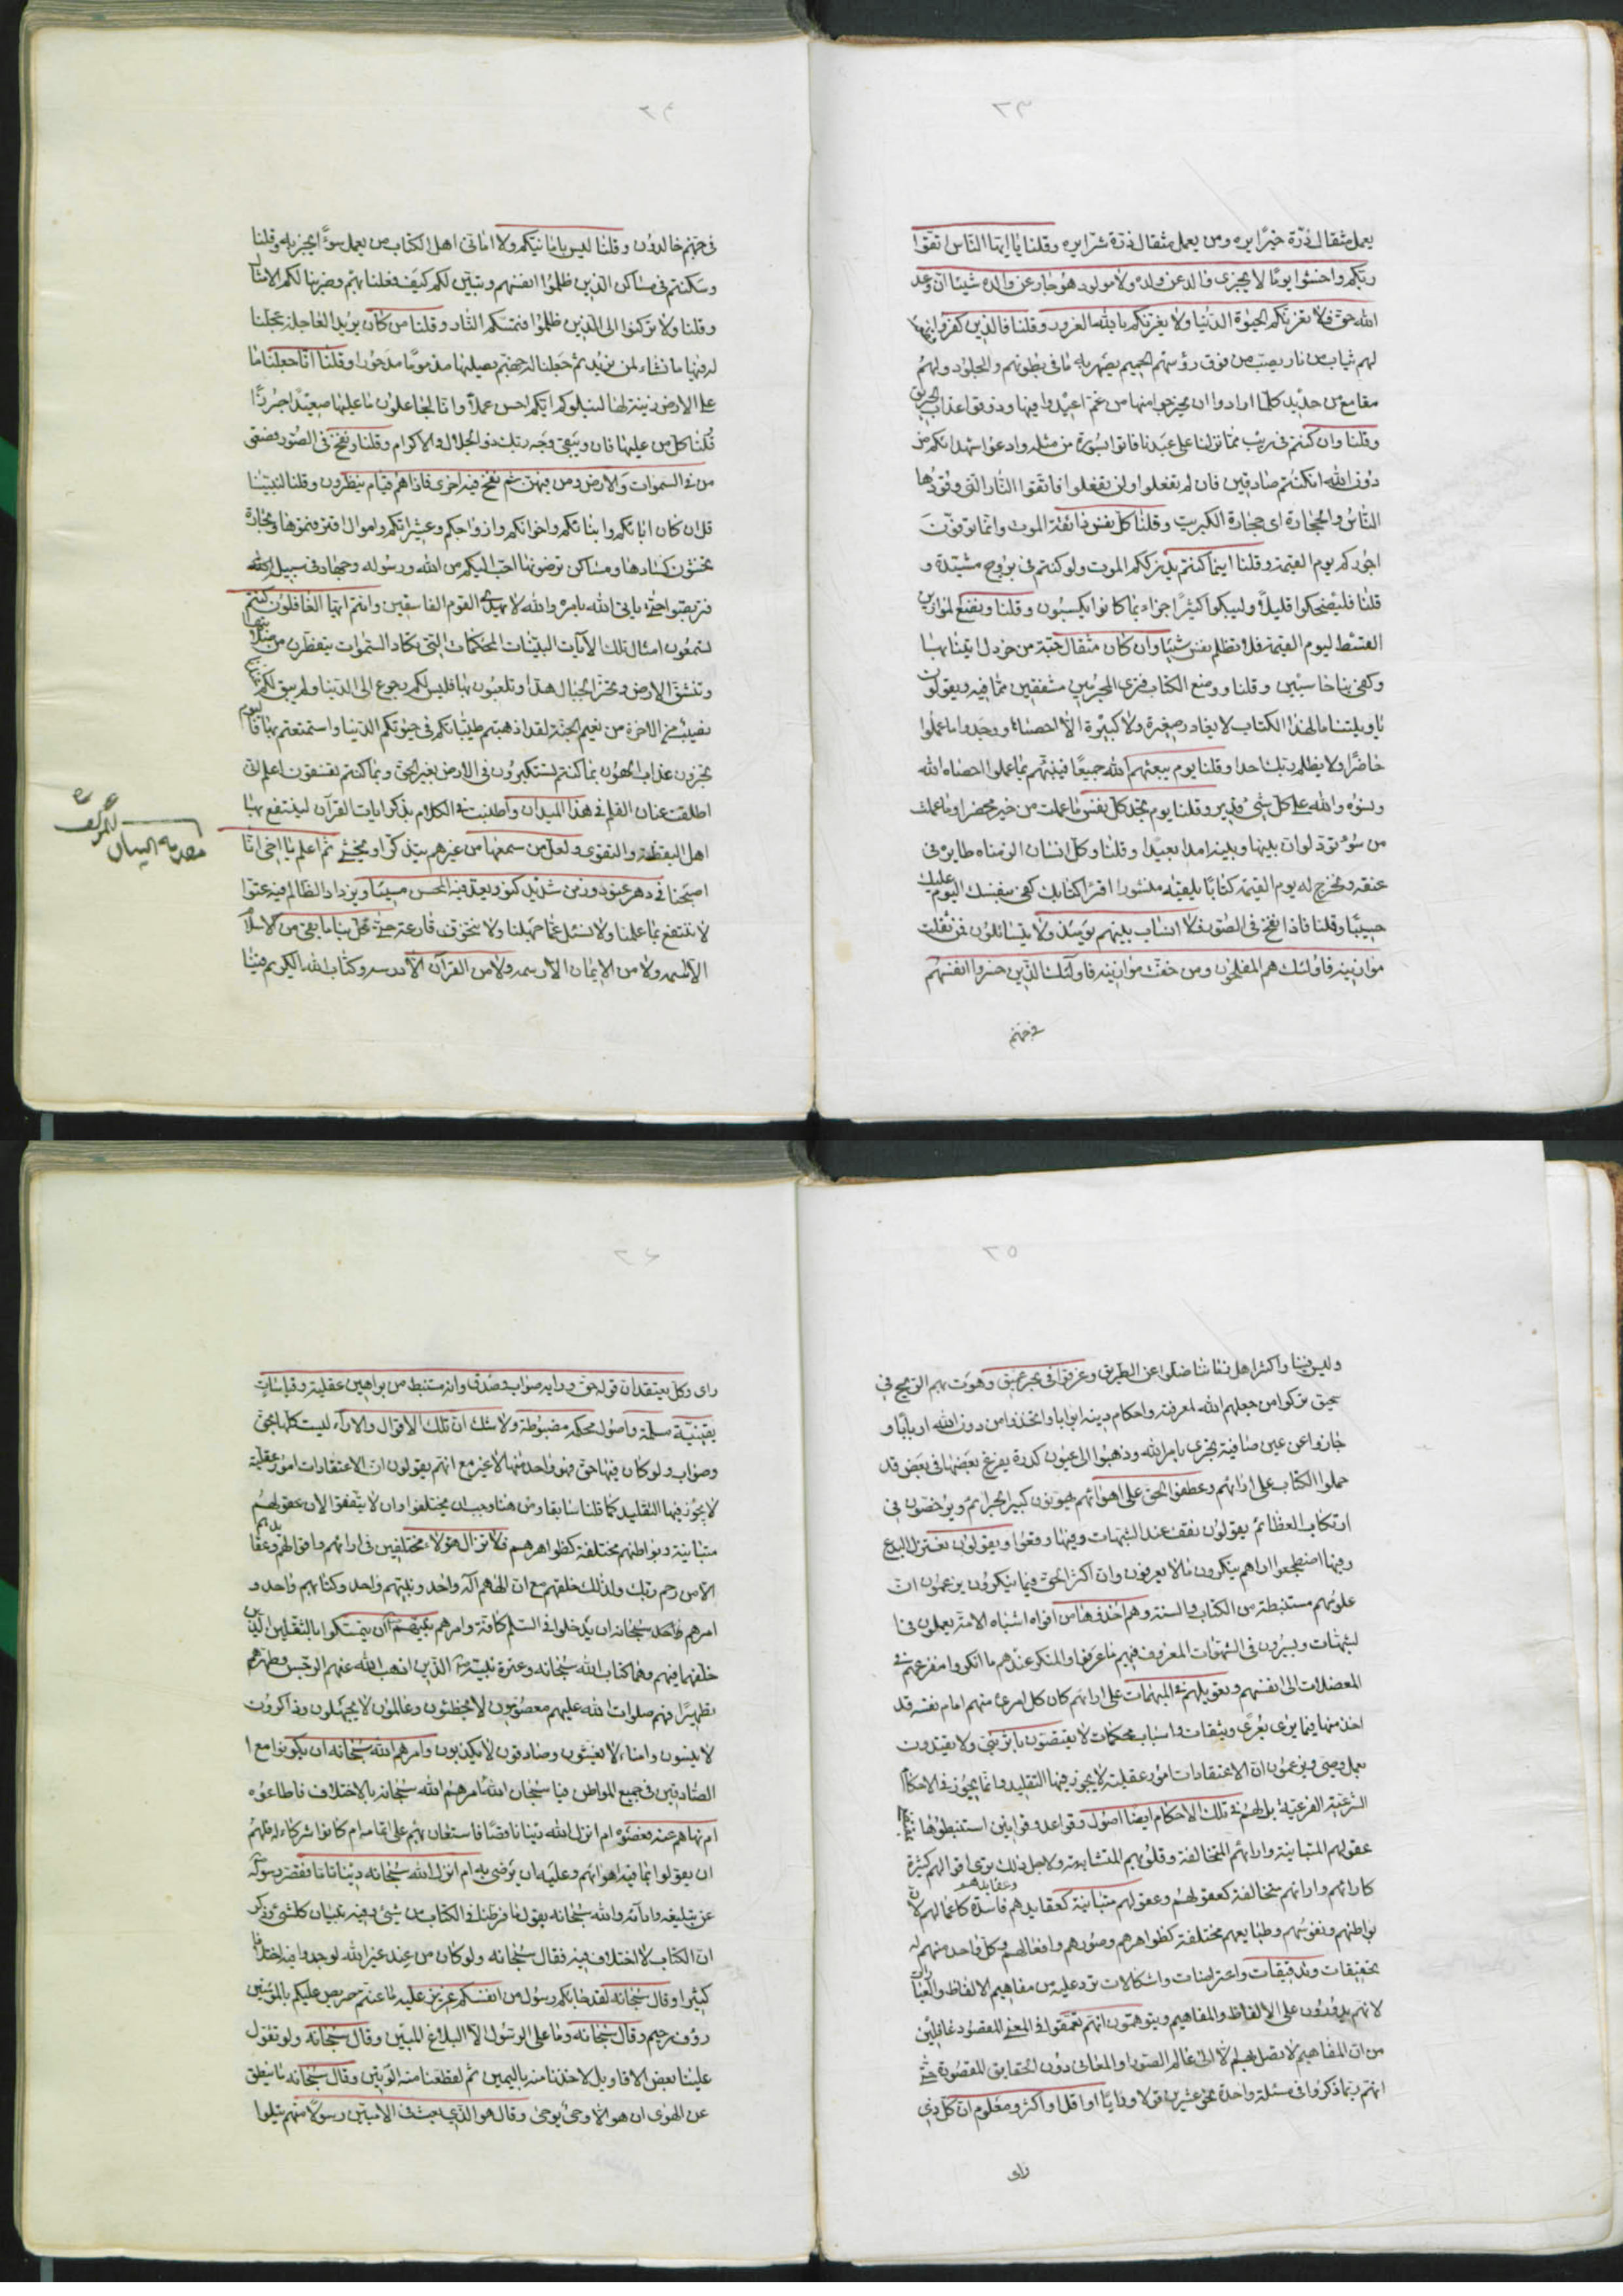 ٢٣
يعمل مثقال ذرّة خيرًا يره ومن يعمل مثقال ذرّة شرًّا يره وقلنا يا ايها النّاس اتقوا
ربّكم واخشوا يومًا لا يجزى والد عن ولده ولا مولود هو جاز عن والده شيئا انّ وعد
الله حق فلا تغرّنكم الحيوة الدّنيا ولا يغرّنكم بالله الغرور وقلنا فالّذين كفروا
لهم ثياب من نار يصبّ من فوق رؤسهم الحميم يصهر به ما فى بطونهم والجلود ولهم
مقامع من حديد كلّما ارادوا ان يخرجوا منها من غمّ اعيدوا فيها وذوقوا عذاب الحريق
وقلنا وان كنتم فى ريب ممّا نزلنا على عبدنا فاتوا بسورة من مثله وادعوا شهداءكم من
دون الله ان كنتم صادقين فان لم تفعلوا ولن تفعلوا فاتقوا النّار الّتى وقودها
النّاس والحجارة اى حجارة الكبريت وقلنا كل نفس ذائقة الموت وانّما توفّون
اجوركم يوم القيمة وقلنا اينما كنتم يدرككم الموت ولو كنتم فى بروج مشيّدة و
قلنا فليضحكوا قليلًا وليبكوا كثيرًا جزاء بما كانوا يكسبون وقلنا ونضع الموازين
القسط ليوم القيمة فلا تظلم نفس شيئا وان كان مثقال حبّة من خردل اتينا بها
وكفى بنا حاسبين وقلنا ووضع الكتاب فترى المجرمين مشفقين ممّا فيه ويقولون
يا ويلتنا ما لهذا الكتاب لا يغادر صغيرة ولا كبيرة الّا احصاها ووجدوا ما عملوا
حاضرًا ولا يظلم ربّك احدا وقلنا يوم يبعثهم الله جميعًا فينبّئهم بما عملوا احصاه الله
ونسوه والله على كلّ شئ قدير وقلنا يوم تجد كلّ نفس ما عملت من خير محضرا وما عملت
من سوء تودّ لو ان بينها وبينه امدا بعيدًا وقلنا وكلّ انسان الزمناه طايره فى
عنقه ونخرج له يوم القيمة كتابًا يلقيه منشورا اقرأ كتابك كفى بنفسك اليوم عليك
حسيبًا وقلنا فاذا نفخ فى الصّور فلا انساب بينهم يومئذ ولا يتسائلون فمن ثقلت
موازينه فاولئك هم المفلحون ومن خفت موازينه فاولئك الّذين خسروا انفسهم
فى جهنم
٢٤
فى جهنّم خالدون وقلنا ليس بامانيّكم ولا امانى اهل الكتاب من يعمل سوءًا يجز به وقلنا
وسكنتم فى مساكن الذين ظلموا انفسهم وتبيّن لكم كيف فعلنا بهم وضربنا لكم الامثال
وقلنا ولا تركنوا الى الّذين ظلموا فتمسّكم النّار وقلنا من كان يريد العاجلة عجّلنا
له فيها ما نشاء لمن نريد ثم جعلنا له جهنّم يصليها مذمومًا مدحورًا وقلنا انّا جعلنا ما
على الارض زينة لها لنبلوكم ايّكم احسن عملًا وانّا لجاعلون ما عليها صعيدًا جرزًا
قلنا كلّ من عليها فان ويبقى وجه ربّك ذو الجلال والاكرام وقلنا ونفخ فى الصّور فصعق
من فى السّموات والارض ومن فيهن ثم نفخ فيه اخرى فاذا هم قيام ينظرون وقلنا لنبيّنا
قل ان كان اباؤكم وابناؤكم واخوانكم وازواجكم وعشيراتكم واموال اقترفتموها وتجارة
تخشون كسادها ومساكن ترضونها احبّ اليكم من الله ورسوله وجهاد فى سبيل الله
فتربصوا حتّى ياتى الله بامره والله لا يهدى القوم الفاسقين وانتم ايّها الغافلون كنتم
تسمعون امثال تلك الآيات البيّنات المحكمات الّتى تكاد السّموات يتفطّرن منها
وتنشقّ الارض وتخرّ الجبال هدّا وتلعبون بها فليس لكم رجوع الى الدّنيا ولم يبق لكم
نصيب فى الاخرة من نعيم الجنّة لقد اذهبتم طيّباتكم فى حيوتكم الدّنيا واستمتعتم بها فاليوم
تجزون عذاب الهون بما كنتم تستكبرون فى الارض بغير الحقّ وبما كنتم تفسقون اعلم انّى
اطلقت عنان القلم فى هذا الميدان واطنبت فى الكلام بذكر ايات القرآن لينتفع بها
اهل اليقظة والتقوى ولعلّ من سمعها من غيرهم يتذكّر او يخشى ثمّ اعلم يا اخى انّا
اصبحنا فى دهر عنود وزمن شديد كنود يعدّ فيه المحسن مسيئا ويزداد الظالم فيه عتوّا
لا ننتفع بما علمنا ولا نسئل عمّا جهلنا ولا نتخوّف قارعة حتّى تحلّ بنا ما بقى من الاسلام
الّا اسمه ولا من الايمان الّا رسمه ولا من القرآن الّا درسه وكتاب الله الكريم فينا
٢٥
وليس فينا واكثر اهل زماننا ضلّوا عن الطريق وغرقوا فى بحر عميق وهوت بهم الريح فى
سحيق تركوا من جعلهم الله لمعرفته واحكام دينه ابوابا واتخذوا من دون الله اربابًا و
جازوا عن عين صافية تجرى بامر الله وذهبوا الى عيون كدرة يفرغ بعضها فى بعض قد
حملوا الكتاب على ارائهم وعطفوا الحق على اهوائهم يهوّنون كبير الجرائم ويرخصون فى
ارتكاب العظائم يقولون نقف عند الشبهات وفيها وقعوا ويقولون نعتزل البدع
وفيها اضطجعوا اراهم ينكرون ما لا يعرفون وان اكثر الحق فيما ينكرون يزعمون انّ
علومهم مستنبطة من الكتاب والسنة وهم اخذوها من افواه اشباه الامّة يعملون فى
الشبهات ويسيرون فى الشهوات المعروف فيهم ما عرفوا والمنكر عندهم ما انكروا مفزعهم فى
المعضلات الى انفسهم وتعويلهم فى المبهمات على ارائهم كان كل امرئ منهم امام نفسه قد
اخذ منها فيما يرى بعرى وثيقات واسباب محكمات لا يقتصّون باثر نبىّ ولا يقتدون
بعمل وصىّ ويزعمون ان الاعتقادات امور عقلية لا يجوز فيها التقليد وانّما يجوز فى الاحكام
الشرعيّة الفرعيّة بل لهم فى تلك الاحكام ايضا اصول وقواعد وقوانين استنبطوها
عقولهم المتباينة وارائهم المتخالفة وقلوبهم المتشابهة ولاجل ذلك ترى اقوالهم كثيرة
كارائهم وارائهم متخالفة كعقولهم وعقولهم متباينة كعقايدهم وعقايدهم فاسدة كاعمالهم لان
بواطنهم ونفوسهم وطبايعهم مختلفة كظواهرهم وصورهم وافعالهم وكلّ واحد منهم له
تحقيقات وتدقيقات واعتراضات واشكالات ترد عليه من مفاهيم الالفاظ والعبارات
لانهم يدورون على الالفاظ والمفاهيم ويتوهمون انهم تعمّقوا فى المعنى المقصود غافلين
من ان المفاهيم لا تصل بهم الّا الى عالم الصّور والمعانى دون الحقايق المقصودة حتّى
انهم ربّما ذكروا فى مسئلة واحدة نحو عشرين قولا ورايًا او اقل او اكثر ومعلوم ان كل ذى
راى
٢٦
راى وكلّ يعتقد ان قوله حقّ ورايه صواب وصدق وانه مستنبط من براهين عقلية وقياسات
يقينيّة مسلّمة واصول محكمة مضبوطة ولا شك ان تلك الاقوال والاراء ليست كلّها حقّ
وصواب ولو كان فيها حق فهو واحد منها لا غير مع انهم يقولون انّ الاعتقادات امور عقليّة
لا يجوز فيها التقليد كما قلنا سابقا ومن هنا وجب ان يختلفوا وان لا يتّفقوا لان عقولهم
متباينة وبواطنهم مختلفة كظواهرهم فلا تزال هؤلاء مختلفين فى ارائهم واقوالهم وعقايدهم
الّا من رحم ربّك ولذلك خلقهم مع ان الههم اله واحد ونبيّهم واحد وكتابهم واحد و
امرهم واحد سبحانه ان يدخلوا فى السّلم كافة وامرهم نبيّهم ان يتمسّكوا بالثقلين الّذين
خلّفهما فيهم وهما كتاب الله سبحانه وعترة نبيّه الّذين اذهب الله عنهم الرجس وطهّرهم
تطهيرًا فهم صلوات الله عليهم معصومون لا يخطئون وعالمون لا يجهلون وذاكرون
لا ينسون وامناء لا يغشّون وصادقون لا يكذبون وامرهم الله سبحانه ان يكونوا مع
الصّادقين فى جميع المواطن فيا سبحان الله أمرهم الله سبحانه بالاختلاف فاطاعوه
ام نهاهم عنه فعصوه ام انزل الله دينا ناقصًا فاستعان بهم على اتمامه ام كانوا شركاء له فلهم
ان يقولوا بما فيه اهوائهم وعليه ان يرضى به ام انزل الله سبحانه دينا تامّا فقصّر رسوله
عن تبليغه وادائه والله سبحانه يقول ما فرّطنا فى الكتاب من شئ وفيه تبيان كلّ شئ وذكر
ان الكتاب لا اختلاف فيه فقال سبحانه ولو كان من عند غير الله لوجدوا فيه اختلافا
كثيرا وقال سبحانه لقد جاءكم رسول من انفسكم عزيز عليه ما عنتم حريص عليكم بالمؤمنين
رؤف رحيم وقال سبحانه وما على الرسول الّا البلاغ المبين وقال سبحانه ولو تقوّل
علينا بعض الاقاويل لاخذنا منه باليمين ثم لقطعنا منه الوتين وقال سبحانه ما ينطق
عن الهوى ان هو الّا وحى يوحى وقال هو الّذى بعث فى الاميّين رسولًا منهم يتلوا